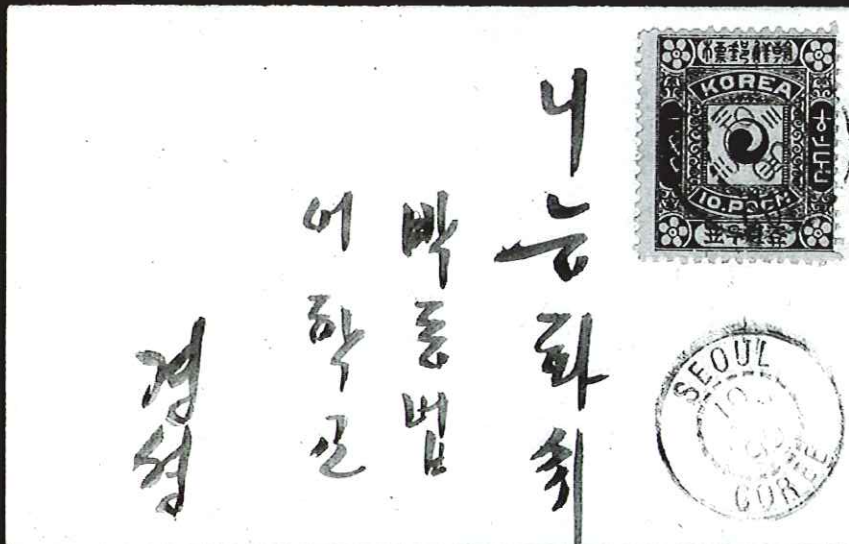 標郵鮮朝
KOREA
10.POON
니능화쉬
박동법
어학교
경셩
SEOUL
COREE